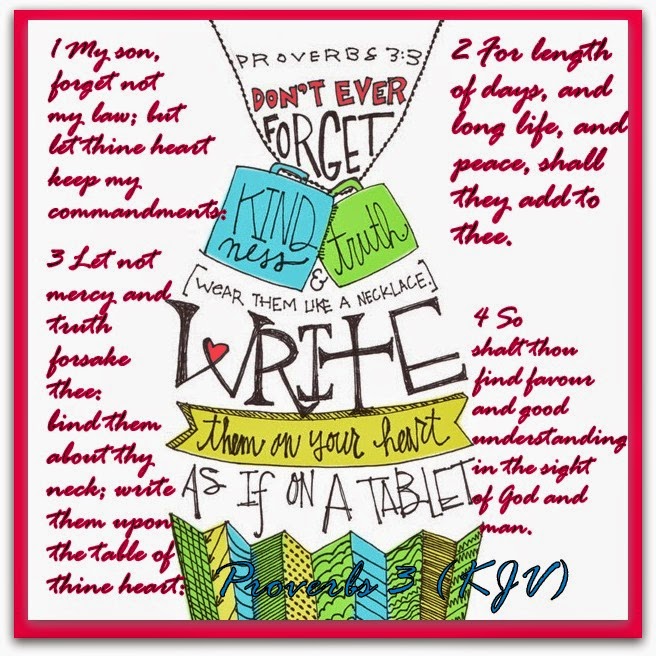 1 My son,
forget not
my law; but
let thine heart
keep my
commandments:
2 For length
of days, and
long life, and
peace, shall
they add to
thee.
3 Let not
mercy and
truth
forsake
thee:
bind them
about thy
neck; write
them upon
the table of
thine heart:
4 So
shalt thou
find favour
and good
understanding
in the sight
of God and
man.
PROVERBS 3:3
DON'T EVER
FORGET
KIND
NESS
&
truth
[WEAR THEM LIKE A NECKLACE.]
WRITE
them on your heart
AS IF ON A TABLET
Proverbs 3 (KJV)